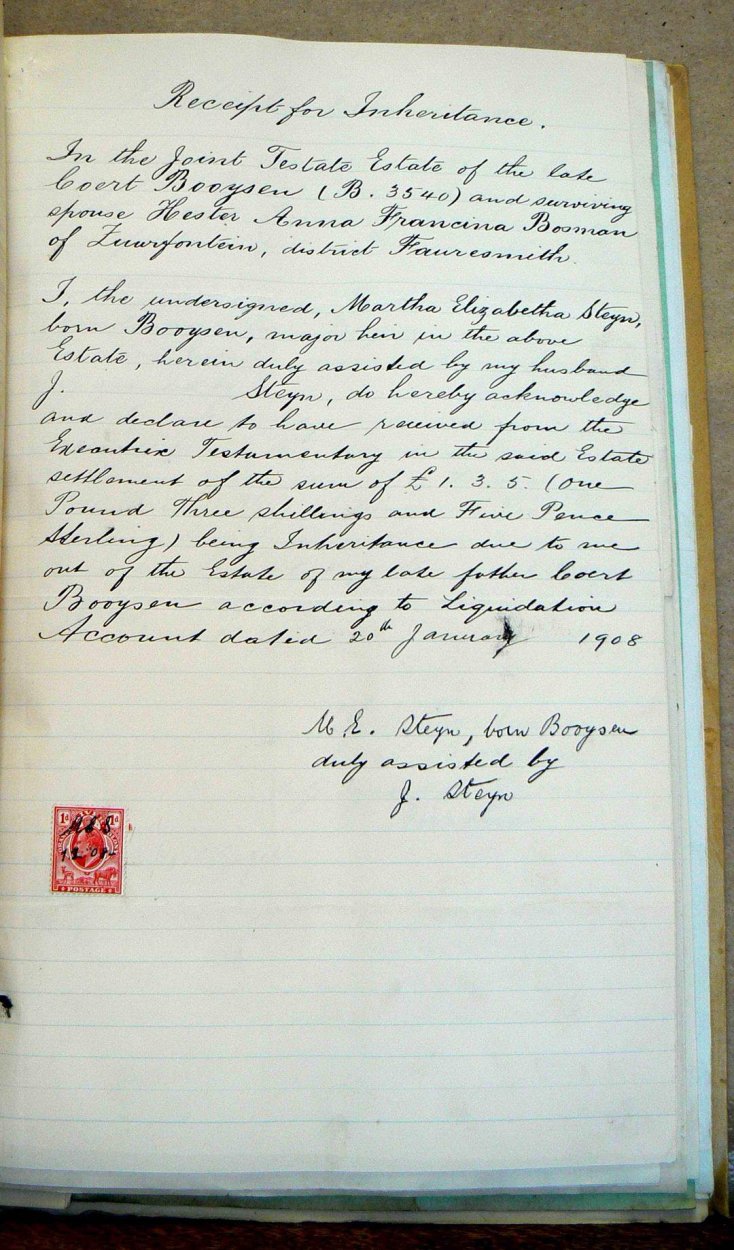 Receipt for Inheritance.
In the Joint Testate Estate of the late
Coert Booysen (B. 3540) and surviving
spouse Hester Anna Francina Bosman
of Zuurfontein, district Fauresmith.
I, the undersigned, Martha Elizabetha Steyn,
born Booysen, major heir in the above
Estate, herein duly assisted by my husband
J. Steyn, do hereby acknowledge
and declare to have received from the
Executrix Testamentary in the said Estate
settlement of the sum of £ 1. 3. 5. (One
Pound Three shillings and Five Pence
Sterling) being Inheritance due to me
out of the Estate of my late father Coert
Booysen according to Liquidation
Account dated 20th January 1908
M. E. Steyn, born Booysen
duly assisted by
J. Steyn
1d 1d
POSTAGE